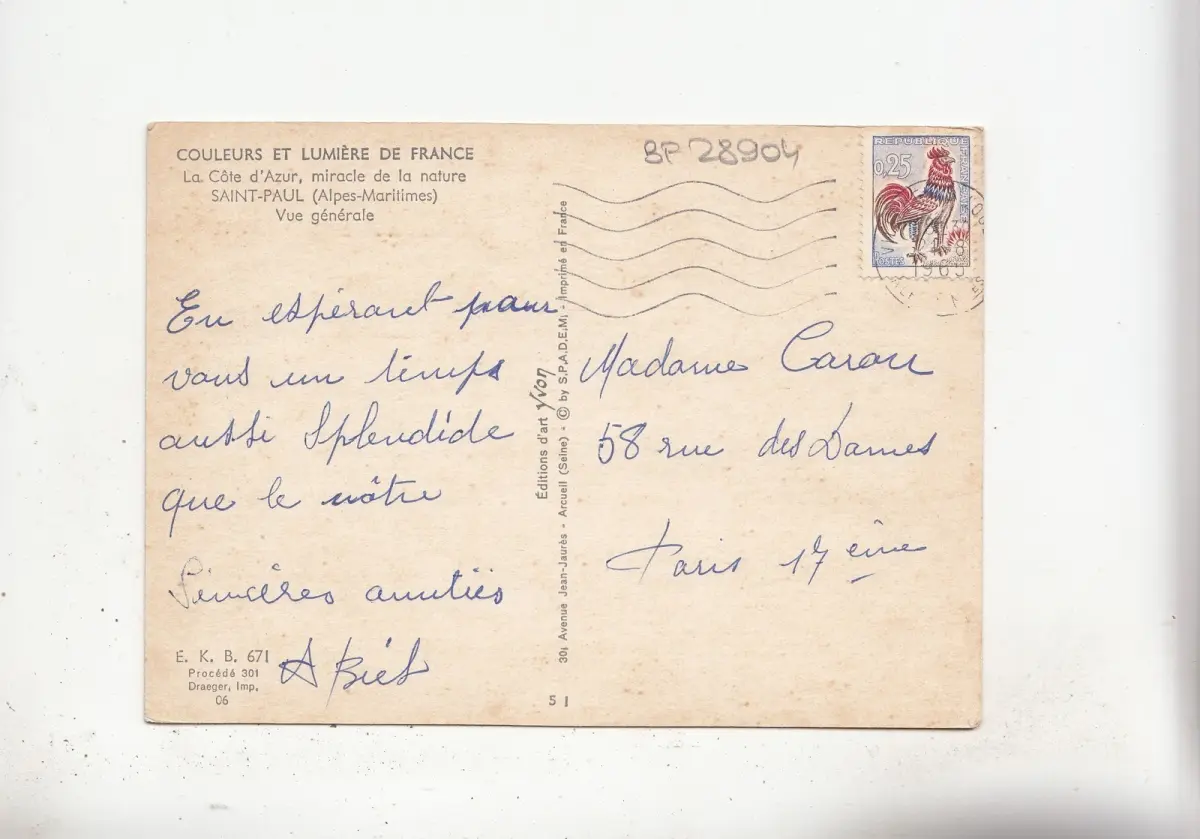 COULEURS ET LUMIÈRE DE FRANCE
La Côte d'Azur, miracle de la nature
SAINT-PAUL (Alpes-Maritimes)
Vue générale
BP 28904
REPUBLIQUE FRANÇAISE
0,25
POSTES
1965
En espérant pour
vous un temps
aussi splendide
que le nôtre
Sincères amitiés
A Biet
Madame Caron
58 rue des Dames
Paris 17 ème
Éditions d'art Yvon
30, Avenue Jean-Jaurès - Arcueil (Seine) - © by S.P.A.D.E.M. - Imprimé en France
E. K. B. 671
Procédé 301
Draeger, Imp.
06
51